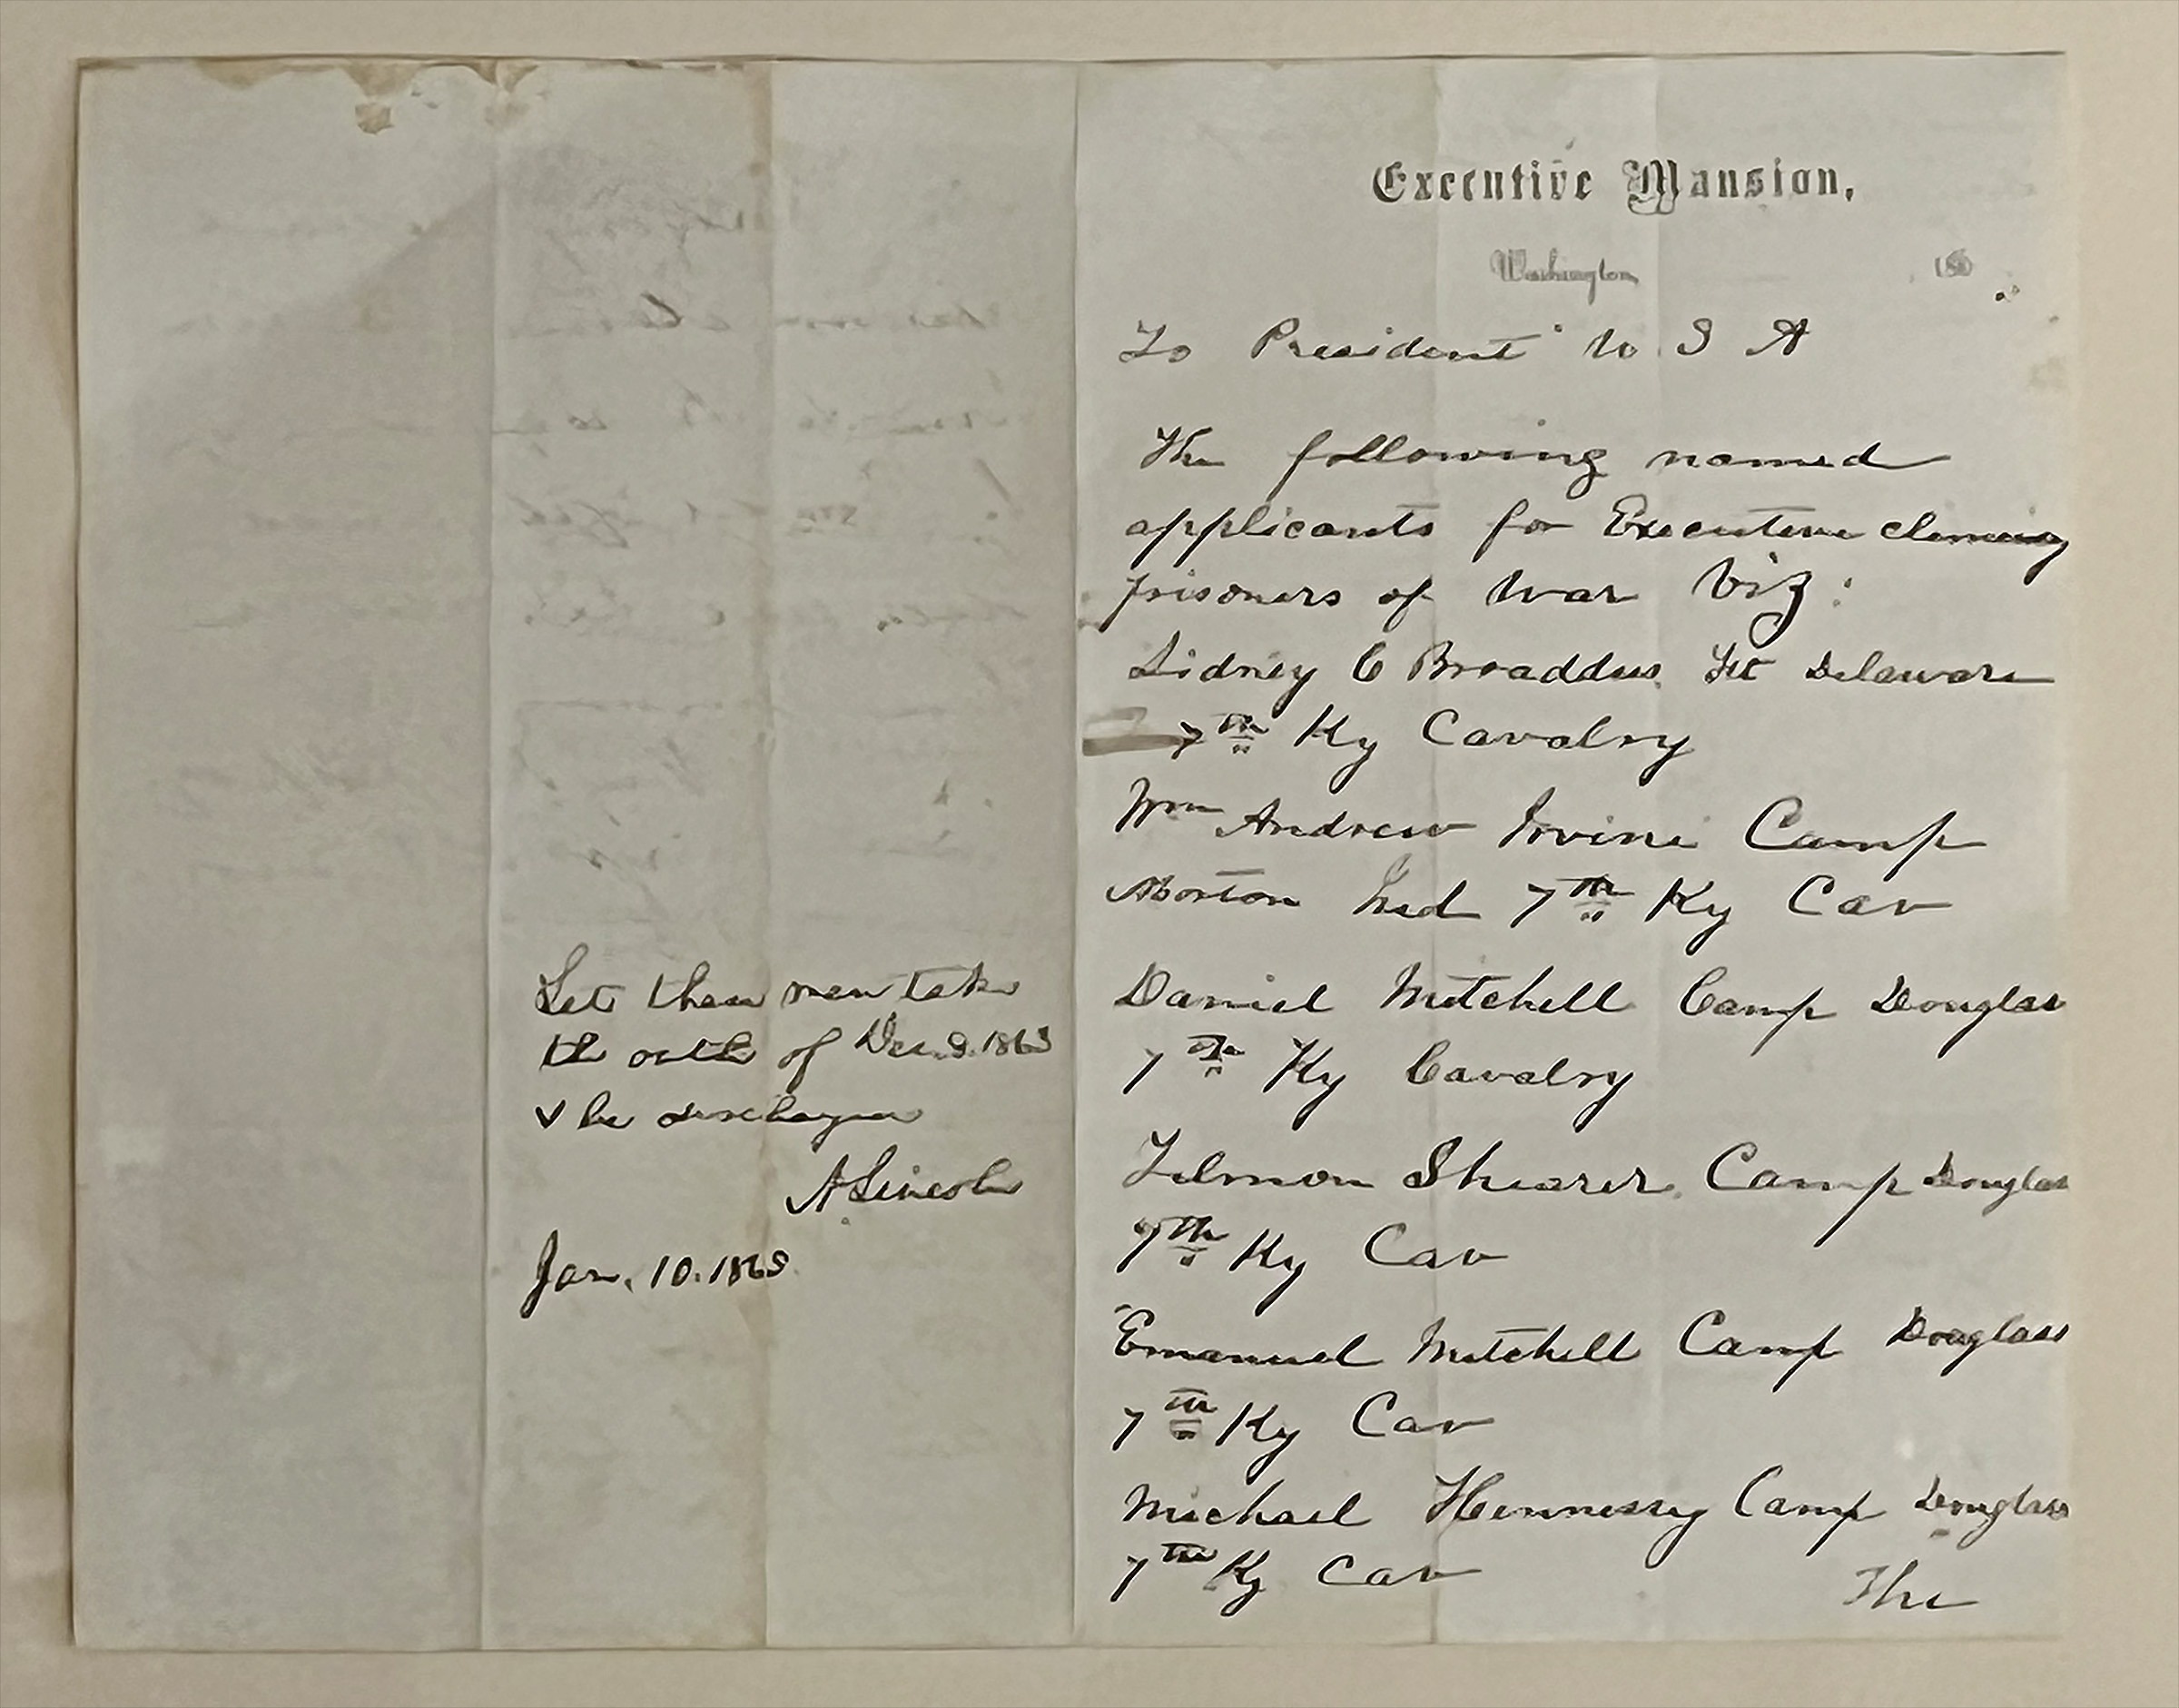 Let these men take
the oath of Dec. 8. 1863
& be discharged
A. Lincoln
Jan. 10. 1865
Executive Mansion,
Washington 186
To President U. S A
The following named
applicants for Executive clemency
prisoners of war Viz:
Sidney C Broaddus Ft Delaware
7th Ky Cavalry
Wm Andrew Irvine Camp
Morton Ind 7th Ky Cav
Daniel Mitchell Camp Douglas
7th Ky Cavalry
Telmon Shearer Camp Douglas
7th Ky Cav
Emanuel Mitchell Camp Douglass
7th Ky Cav
Michael Hennessy Camp Douglass
7th Ky Cav
The